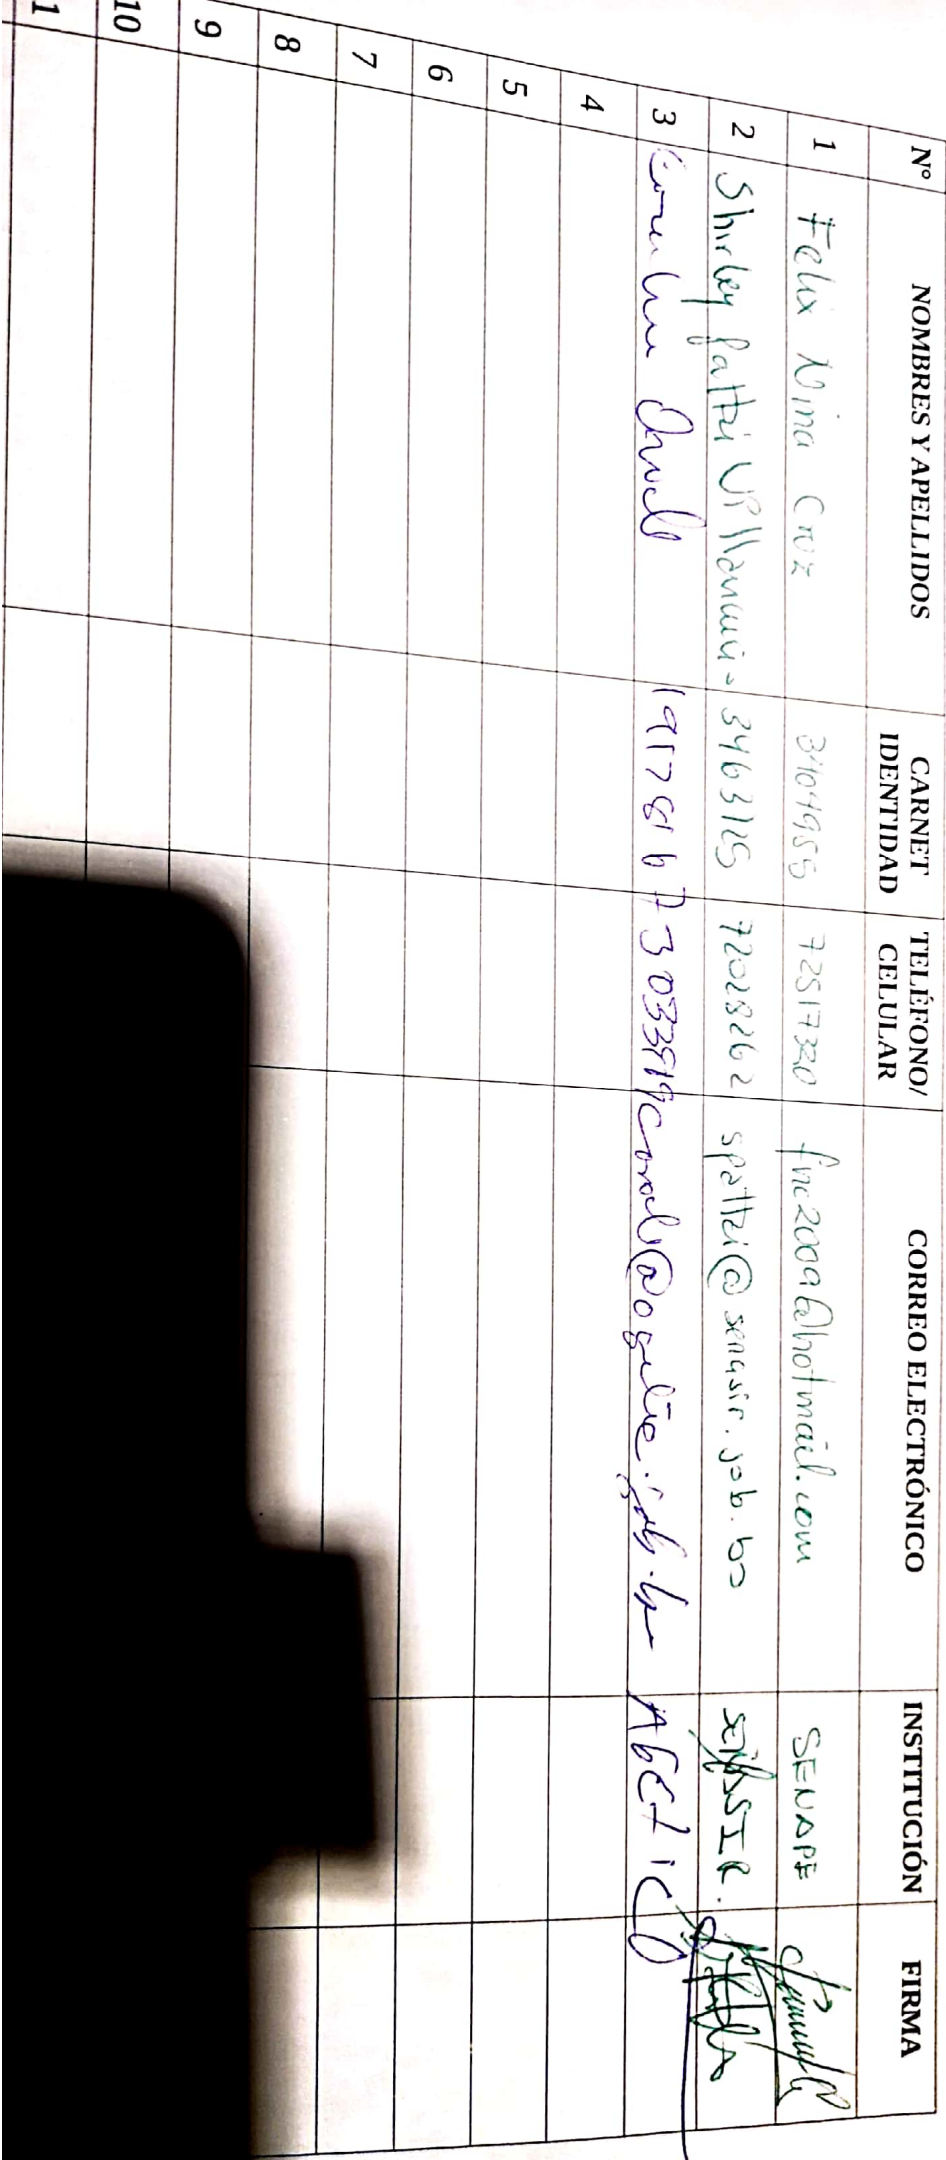 Nº NOMBRES Y APELLIDOS CARNET IDENTIDAD TELÉFONO/ CELULAR CORREO ELECTRÓNICO INSTITUCIÓN FIRMA
1 Felix Nina Cruz 3404955 72517320 fnc2009@hotmail.com SENAPE
2 Shirley Pattzi Villanueva 3463125 72028262 spattzi@senasir.gob.bo SENASIR.
3 AGETIC
4
5
6
7
8
9
10
1